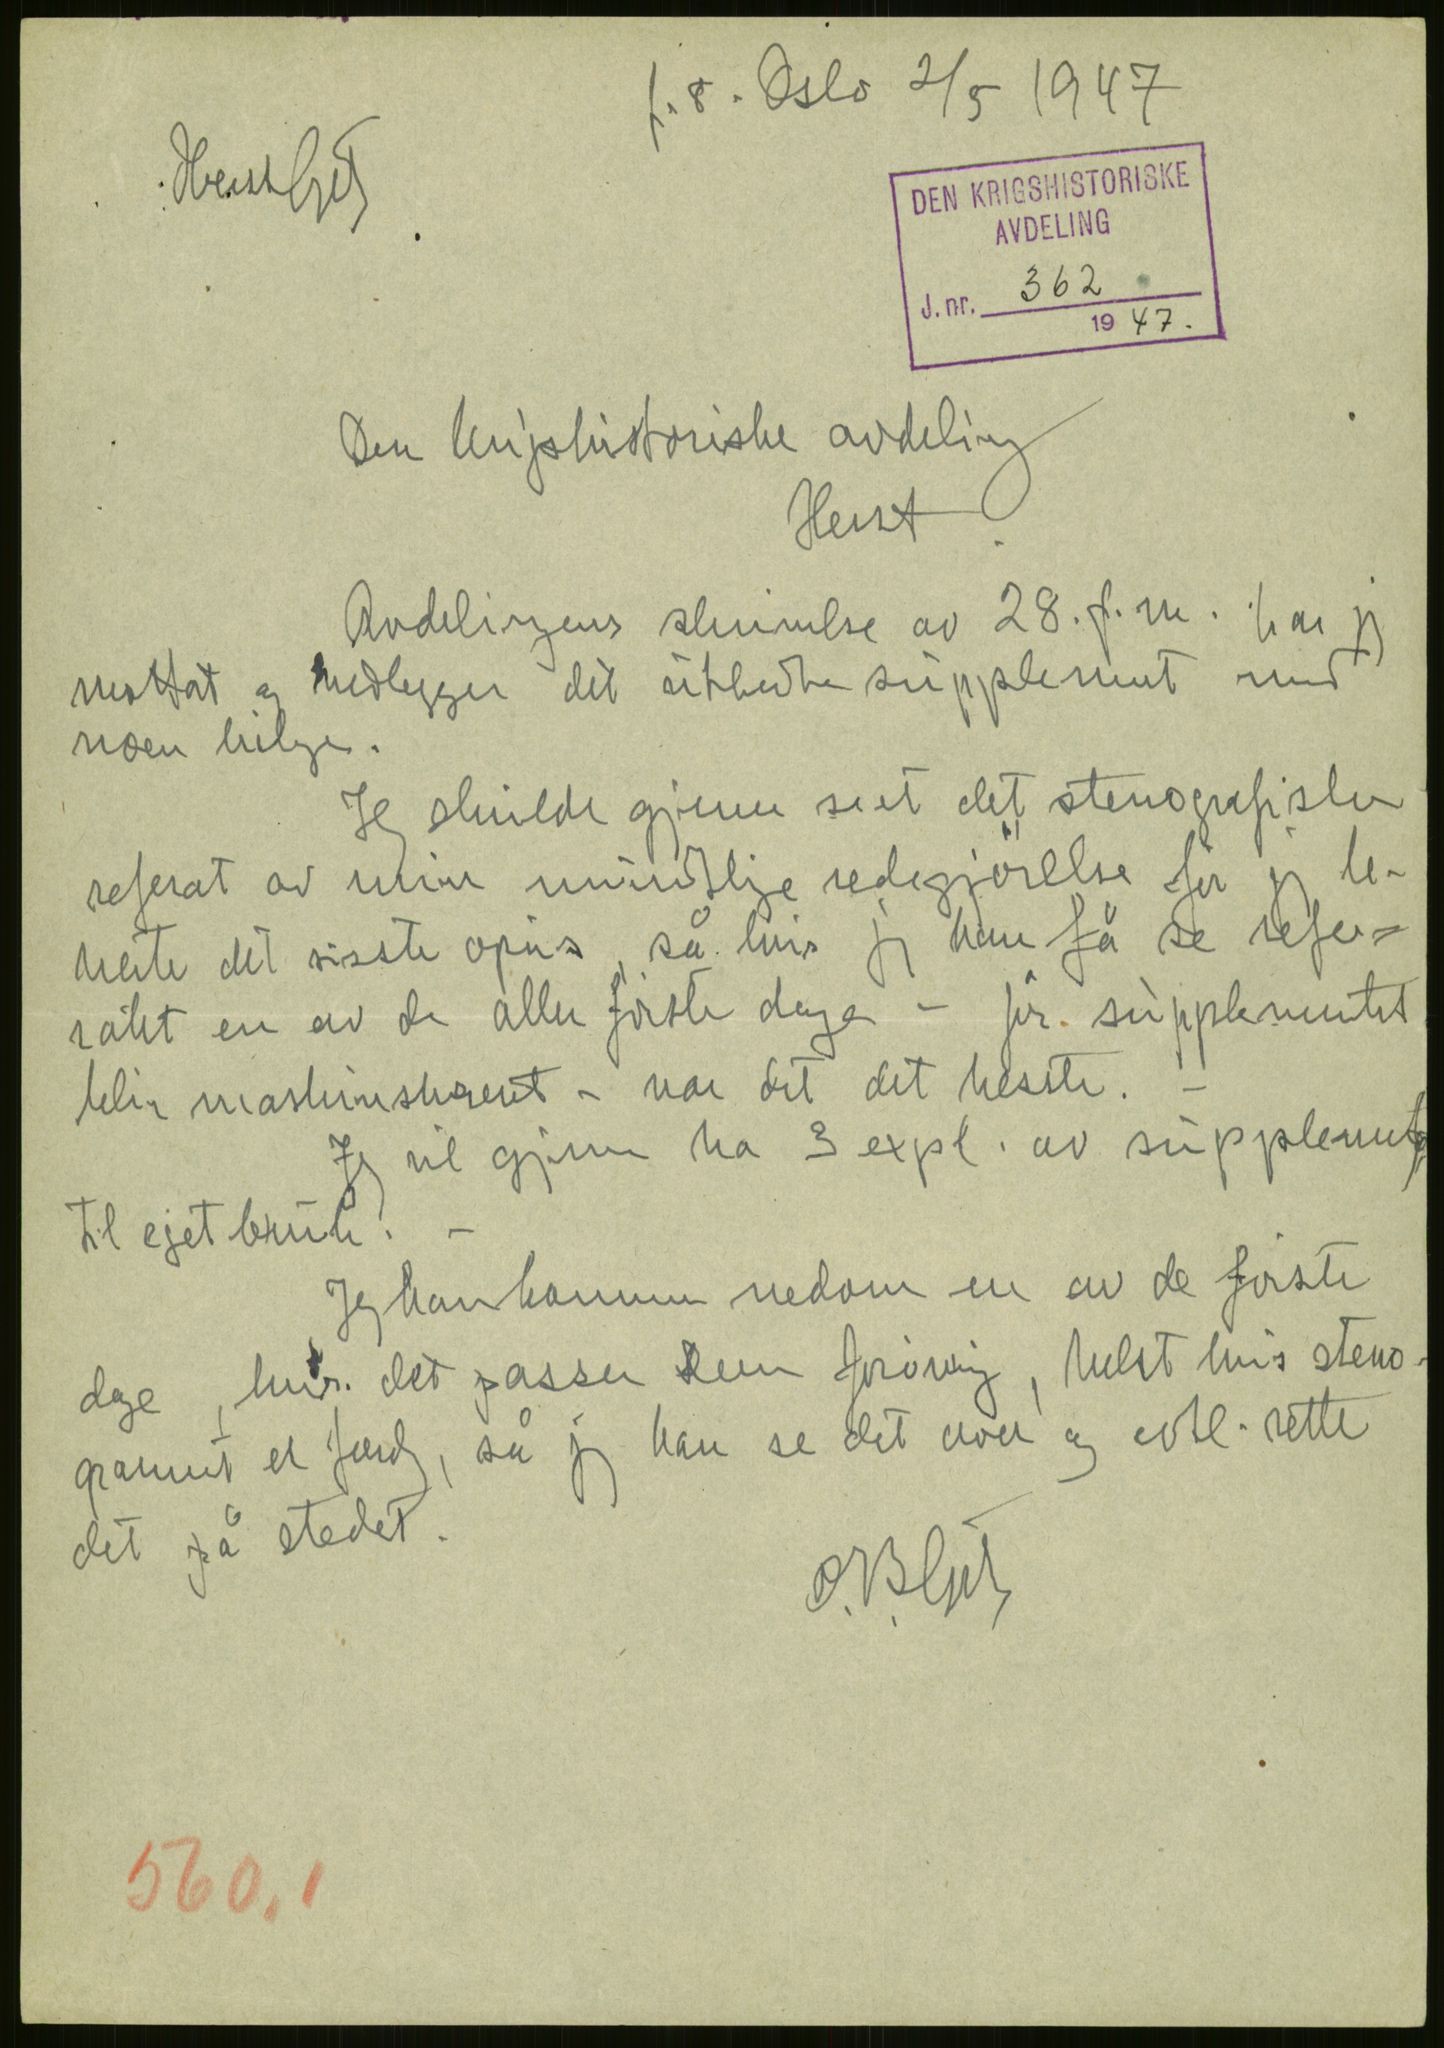 p.t. Oslo 2/5 1947
DEN KRIGSHISTORISKE
AVDELING
J. nr. 362
1947.
Den krigshistoriske avdeling
Herst
Avdelingens skrivelse av 28. f.m. har jeg
mottat og vedlegger det utbedte supplement med
noen bilage.
Jeg skulde gjerne sett det stenografiske
referat av min mundtlige redegjörelse för jeg be-
nevnte det sisste opus, så hvis jeg kan få se refe-
ratet en av de aller förste dage - för supplementet
blir maskinskrevet - var det det besste. -
Jeg vil gjerne ha 3 expl. av supplementet
til eget bruk. -
Jeg kan komme nedom en av de förste
dage, hvis det passer Dem forövrig, helst hvis steno-
grammet er ferdig, så jeg kan se det over og evtl. rette
det på stedet.
560.1